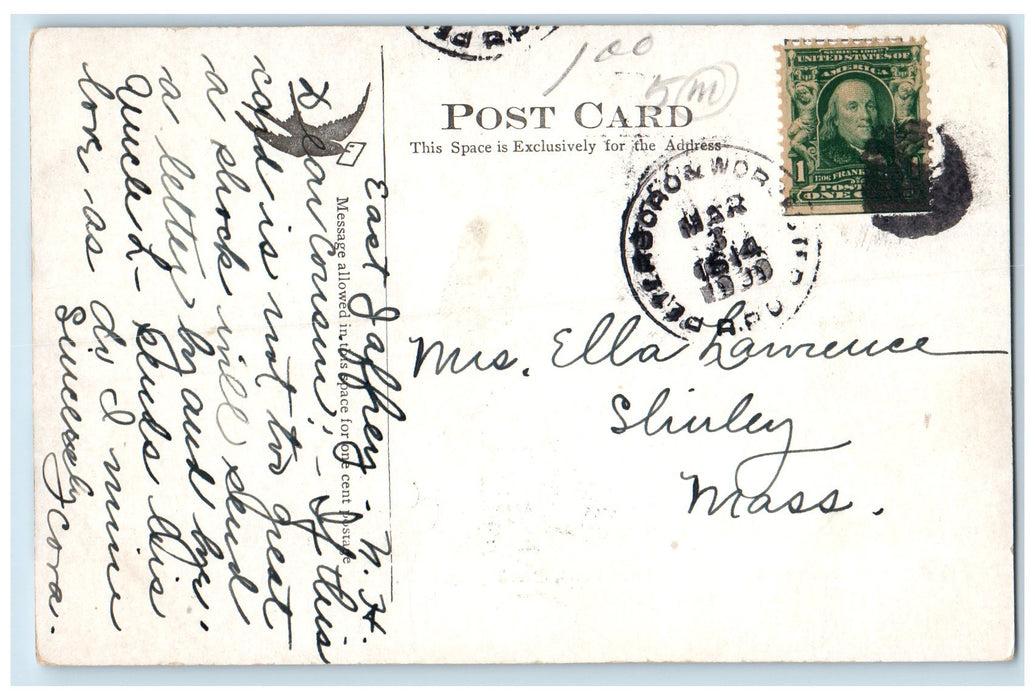 1 00
5 m
POST CARD
This Space is Exclusively for the Address
Message allowed in this space for one cent postage
SERIES 1902
UNITED STATES OF
AMERICA
1
1706 FRANK
POST
ONE C
PETERBORO & WOR
R.P.O.
MAR
3
1909
R.P.O.
East Jaffrey - N.H.
Dear Cousin; - If this
card is not too great
a shock will send
a letter by and bye.
Uncle L - sends his
love as do I mine
Sincerely Cora.
Mrs. Ella Lawrence
Shirley
Mass.